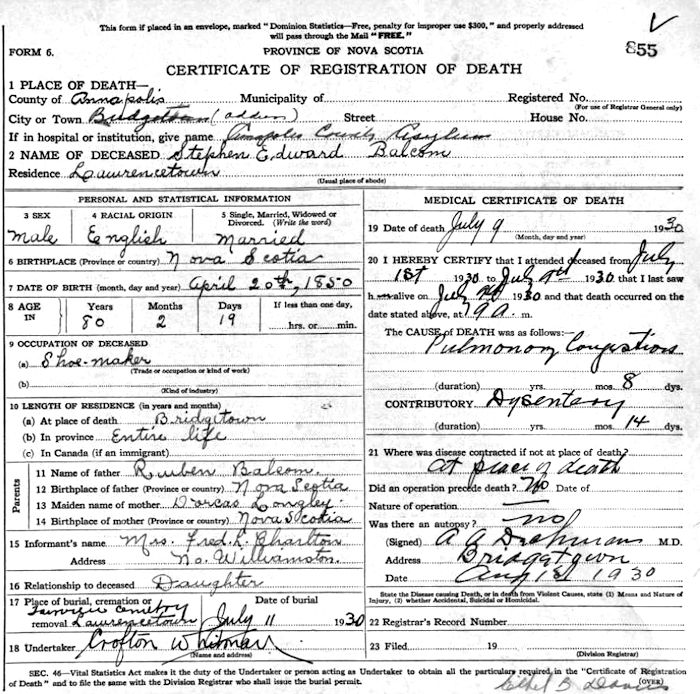 This form if placed in an envelope, marked "Dominion Statistics—Free, penalty for improper use $300," and properly addressed
will pass through the Mail "FREE."
FORM 6.
PROVINCE OF NOVA SCOTIA
855
CERTIFICATE OF REGISTRATION OF DEATH
1 PLACE OF DEATH—
County of Annapolis Municipality of Registered No.
(For use of Registrar General only)
City or Town Bridgetown Street House No.
If in hospital or institution, give name Annapolis County Asylum
2 NAME OF DECEASED Stephen Edward Balcom
Residence Lawrencetown
(Usual place of abode)
PERSONAL AND STATISTICAL INFORMATION
3 SEX 4 RACIAL ORIGIN 5 Single, Married, Widowed or Divorced. (Write the word)
Male English Married
6 BIRTHPLACE (Province or country) Nova Scotia
7 DATE OF BIRTH (month, day and year) April 20th, 1850
8 AGE IN Years Months Days If less than one day,
80 2 19 hrs. or min.
9 OCCUPATION OF DECEASED
(a) Shoe-maker
(Trade or occupation or kind of work)
(b)
(Kind of industry)
10 LENGTH OF RESIDENCE (in years and months)
(a) At place of death Bridgetown
(b) In province Entire life
(c) In Canada (if an immigrant)
Parents
11 Name of father Ruben Balcom.
12 Birthplace of father (Province or country) Nova Scotia
13 Maiden name of mother Dorcas Longley.
14 Birthplace of mother (Province or country) Nova Scotia
15 Informant's name Mrs. Fred L. Charlton
Address No. Williamston.
16 Relationship to deceased Daughter
17 Place of burial, cremation or removal Date of burial
Fairview Cemetery Lawrencetown July 11 1930
18 Undertaker Crofton Whitman
(Name and address)
MEDICAL CERTIFICATE OF DEATH
19 Date of death July 9 1930
(Month, day and year)
20 I HEREBY CERTIFY that I attended deceased from July
1st 1930 to July 9th 1930 that I last saw
h alive on July 1930 and that death occurred on the
date stated above, at 9 a. m.
The CAUSE OF DEATH was as follows:
Pulmonary Congestion
(duration) yrs. mos. 8 dys.
CONTRIBUTORY Dysentery
(duration) yrs. mos. 14 dys.
21 Where was disease contracted if not at place of death?
At place of death
Did an operation precede death? No Date of
Nature of operation
Was there an autopsy? no
(Signed) A A M.D.
Address Bridgetown
Date Aug 1st 1930
State the Disease causing Death, or in death from Violent Causes, state (1) Means and Nature of Injury, (2) whether Accidental, Suicidal or Homicidal.
22 Registrar's Record Number
23 Filed 19
(Division Registrar)
SEC. 46—Vital Statistics Act makes it the duty of the Undertaker or person acting as Undertaker to obtain all the particulars required in the "Certificate of Registration
of Death" and to file the same with the Division Registrar who shall issue the burial permit. (OVER)
Ethel B